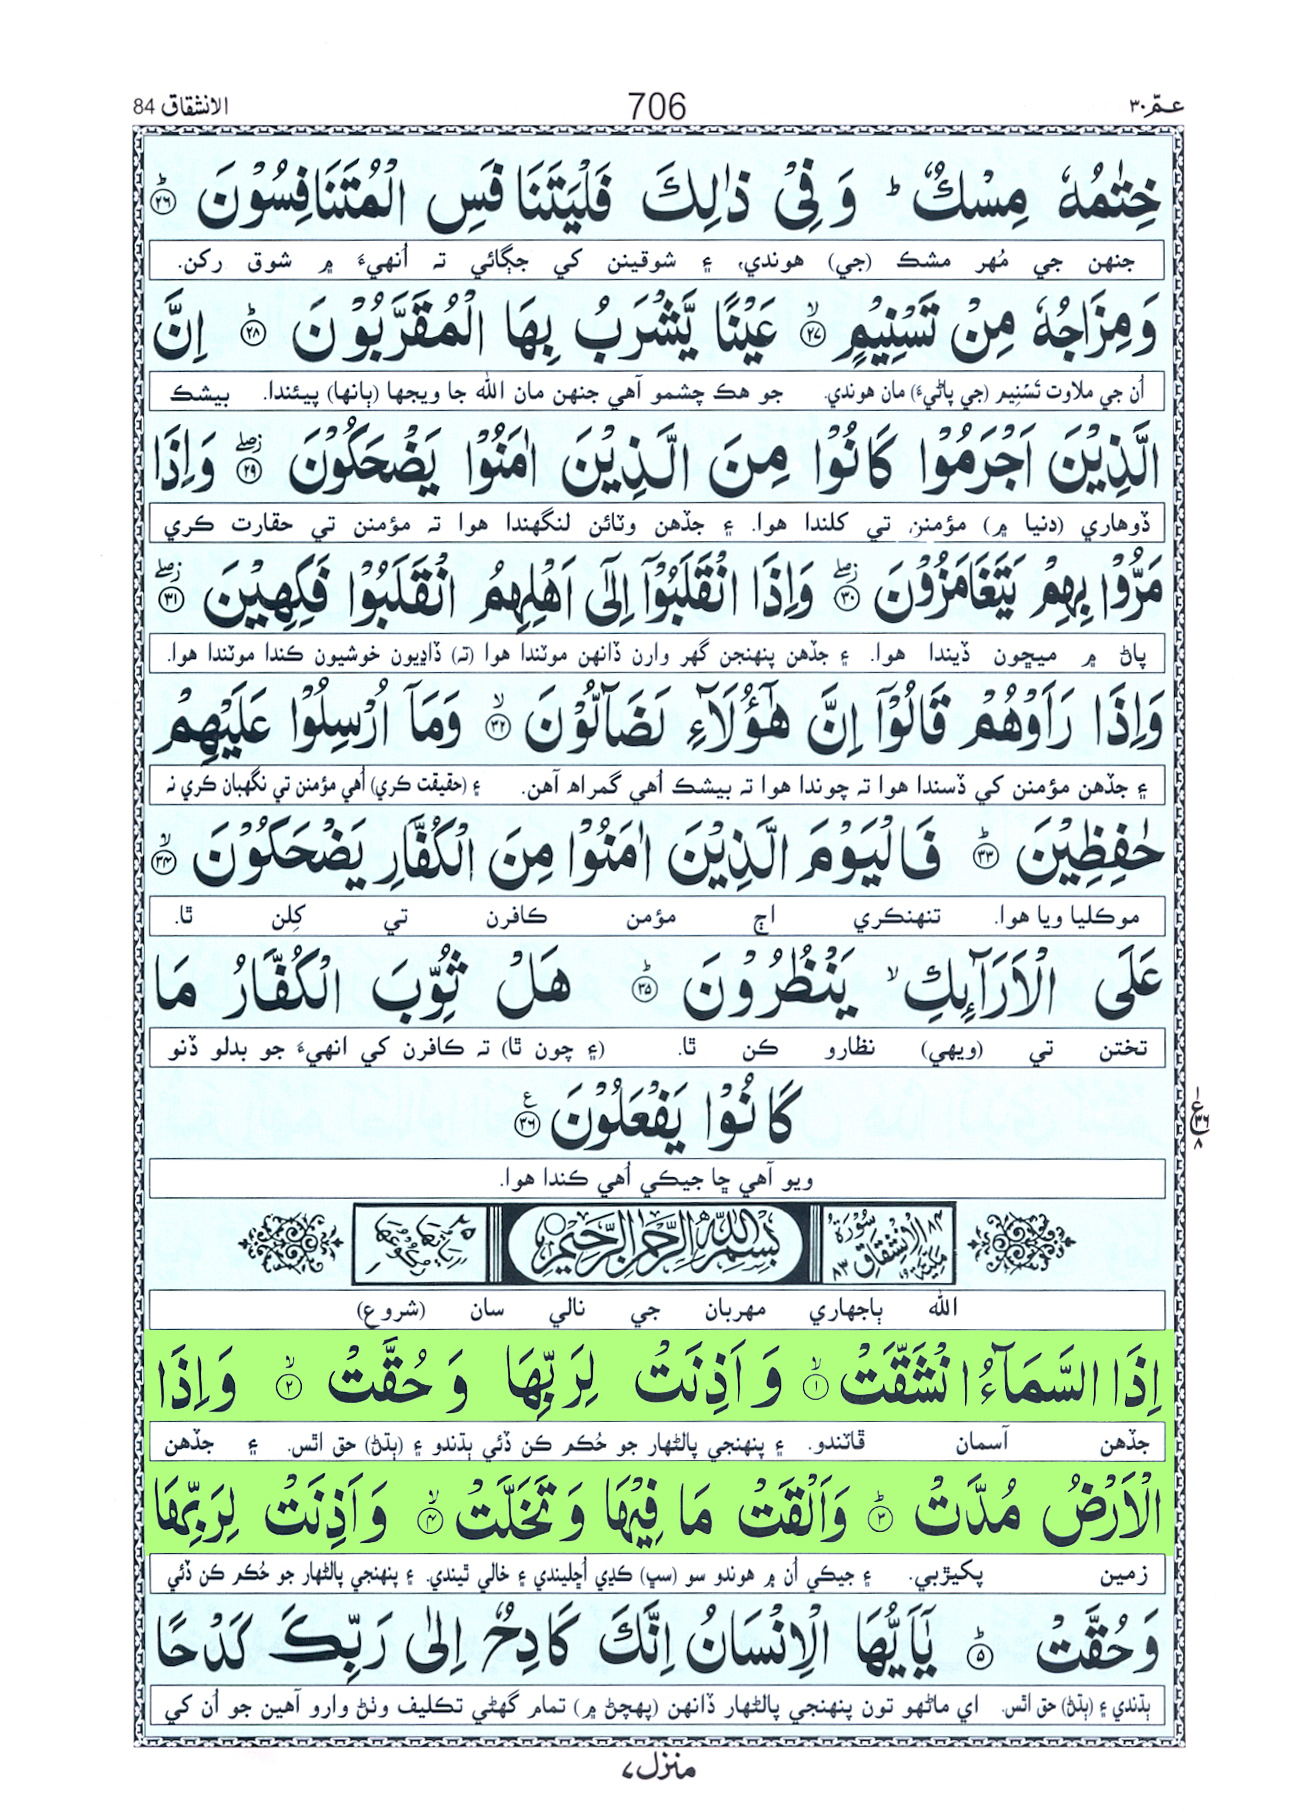 الانشقاق 84
706
عـمّ ٣٠
خِتٰمُهٗ مِسْكٌ ؕ وَ فِیْ ذٰلِكَ فَلْیَتَنَافَسِ الْمُتَنَافِسُوْنَ ؕ﴿۲۶﴾
جنهن جي مُهر مشڪ (جي) هوندي، ۽ شوقينن کي جڳائي تہ اُنهيءَ ۾ شوق رکن.
وَ مِزَاجُهٗ مِنْ تَسْنِیْمٍ ۙ﴿۲۷﴾ عَیْنًا یَّشْرَبُ بِهَا الْمُقَرَّبُوْنَ ؕ﴿۲۸﴾ اِنَّ
اُن جي ملاوت تَسْنِيم (جي پاڻيءَ) مان هوندي. جو هڪ چشمو آهي جنهن مان الله جا ويجها (ٻانها) پيئندا. بيشڪ
الَّذِیْنَ اَجْرَمُوْا كَانُوْا مِنَ الَّذِیْنَ اٰمَنُوْا یَضْحَكُوْنَ ﴿۲۹﴾ وَ اِذَا
ڏوهاري (دنيا ۾) مؤمنن تي کلندا هوا. ۽ جڏهن وٽائن لنگهندا هوا تہ مؤمنن تي حقارت ڪري
مَرُّوْا بِهِمْ یَتَغَامَزُوْنَ ﴿۳۰﴾ وَ اِذَا انْقَلَبُوْۤا اِلٰۤی اَهْلِهِمُ انْقَلَبُوْا فَكِهِیْنَ ﴿۳۱﴾
پاڻ ۾ ميڇون ڏيندا هوا. ۽ جڏهن پنهنجن گهر وارن ڏانهن موٽندا هوا (تہ) ڏاڍيون خوشيون ڪندا موٽندا هوا.
وَ اِذَا رَاَوْهُمْ قَالُوْۤا اِنَّ هٰۤؤُلَآءِ لَضَآلُّوْنَ ۙ﴿۳۲﴾ وَ مَاۤ اُرْسِلُوْا عَلَیْهِمْ
۽ جڏهن مؤمنن کي ڏسندا هوا تہ چوندا هوا تہ بيشڪ اُهي گمراھ آهن. ۽ (حقيقت ڪري) اُهي مؤمنن تي نگهبان ڪري نہ
حٰفِظِیْنَ ؕ﴿۳۳﴾ فَالْیَوْمَ الَّذِیْنَ اٰمَنُوْا مِنَ الْكُفَّارِ یَضْحَكُوْنَ ۙ﴿۳۴﴾
موڪليا ويا هوا. تنهنڪري اڄ مؤمن ڪافرن تي کِلن ٿا.
عَلَی الْاَرَآىِٕكِ ۙ یَنْظُرُوْنَ ؕ﴿۳۵﴾ هَلْ ثُوِّبَ الْكُفَّارُ مَا
تختن تي (ويهي) نظارو ڪن ٿا. (۽ چون ٿا) تہ ڪافرن کي انهيءَ جو بدلو ڏنو
كَانُوْا یَفْعَلُوْنَ ﴿۳۶﴾
ع ۱ ۳۶ ۸
ويو آهي ڇا جيڪي اُهي ڪندا هوا.
۸۴ سُوْرَةُ الْاِنْشِقَاقِ مَكِّيَّةٌ ۸۳ بِسْمِ اللهِ الرَّحْمٰنِ الرَّحِيْمِ اٰيَاتُهَا ۲۵ رُكُوْعُهَا ۱
الله ٻاجهاري مهربان جي نالي سان (شروع)
اِذَا السَّمَآءُ انْشَقَّتْ ۙ﴿۱﴾ وَ اَذِنَتْ لِرَبِّهَا وَ حُقَّتْ ۙ﴿۲﴾ وَ اِذَا
جڏهن آسمان ڦاٽندو. ۽ پنهنجي پالڻهار جو حُڪم ڪن ڏئي ٻڌندو ۽ (ٻڌڻ) حق اٿس. ۽ جڏهن
الْاَرْضُ مُدَّتْ ؕ﴿۳﴾ وَ اَلْقَتْ مَا فِیْهَا وَ تَخَلَّتْ ۙ﴿۴﴾ وَ اَذِنَتْ لِرَبِّهَا
زمين پکيڙبي. ۽ جيڪي اُن ۾ هوندو سو (سڀ) ڪڍي اُڇليندي ۽ خالي ٿيندي. ۽ پنهنجي پالڻهار جو حُڪم ڪن ڏئي
وَ حُقَّتْ ؕ﴿۵﴾ یٰۤاَیُّهَا الْاِنْسَانُ اِنَّكَ كَادِحٌ اِلٰی رَبِّكَ كَدْحًا
ٻڌندي ۽ (ٻڌڻ) حق اٿس. اي ماڻهو تون پنهنجي پالڻهار ڏانهن (پهچڻ ۾) تمام گهڻي تڪليف وٺڻ وارو آهين جو اُن کي
منزل ۷